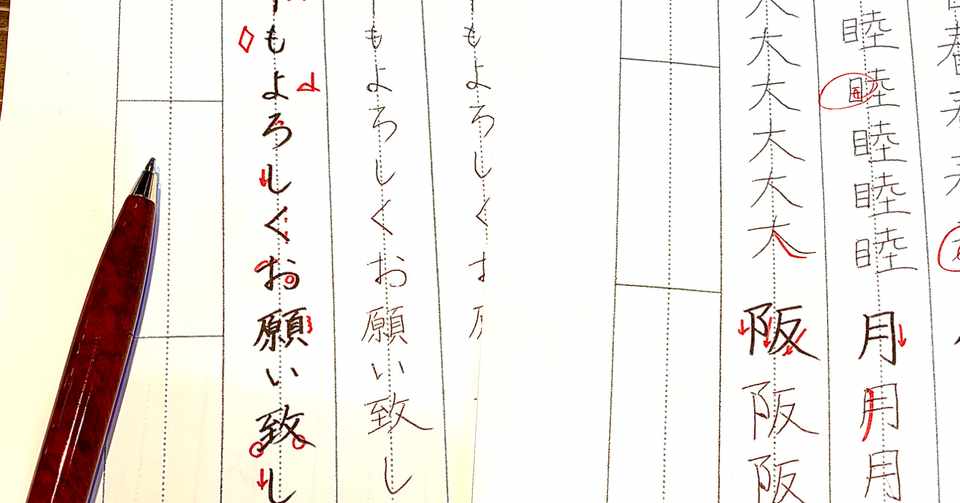 睦睦睦睦睦月月月
大大大大大大阪阪阪
もよろしく
もよろしくお願い致し
もよろしくお願い致し